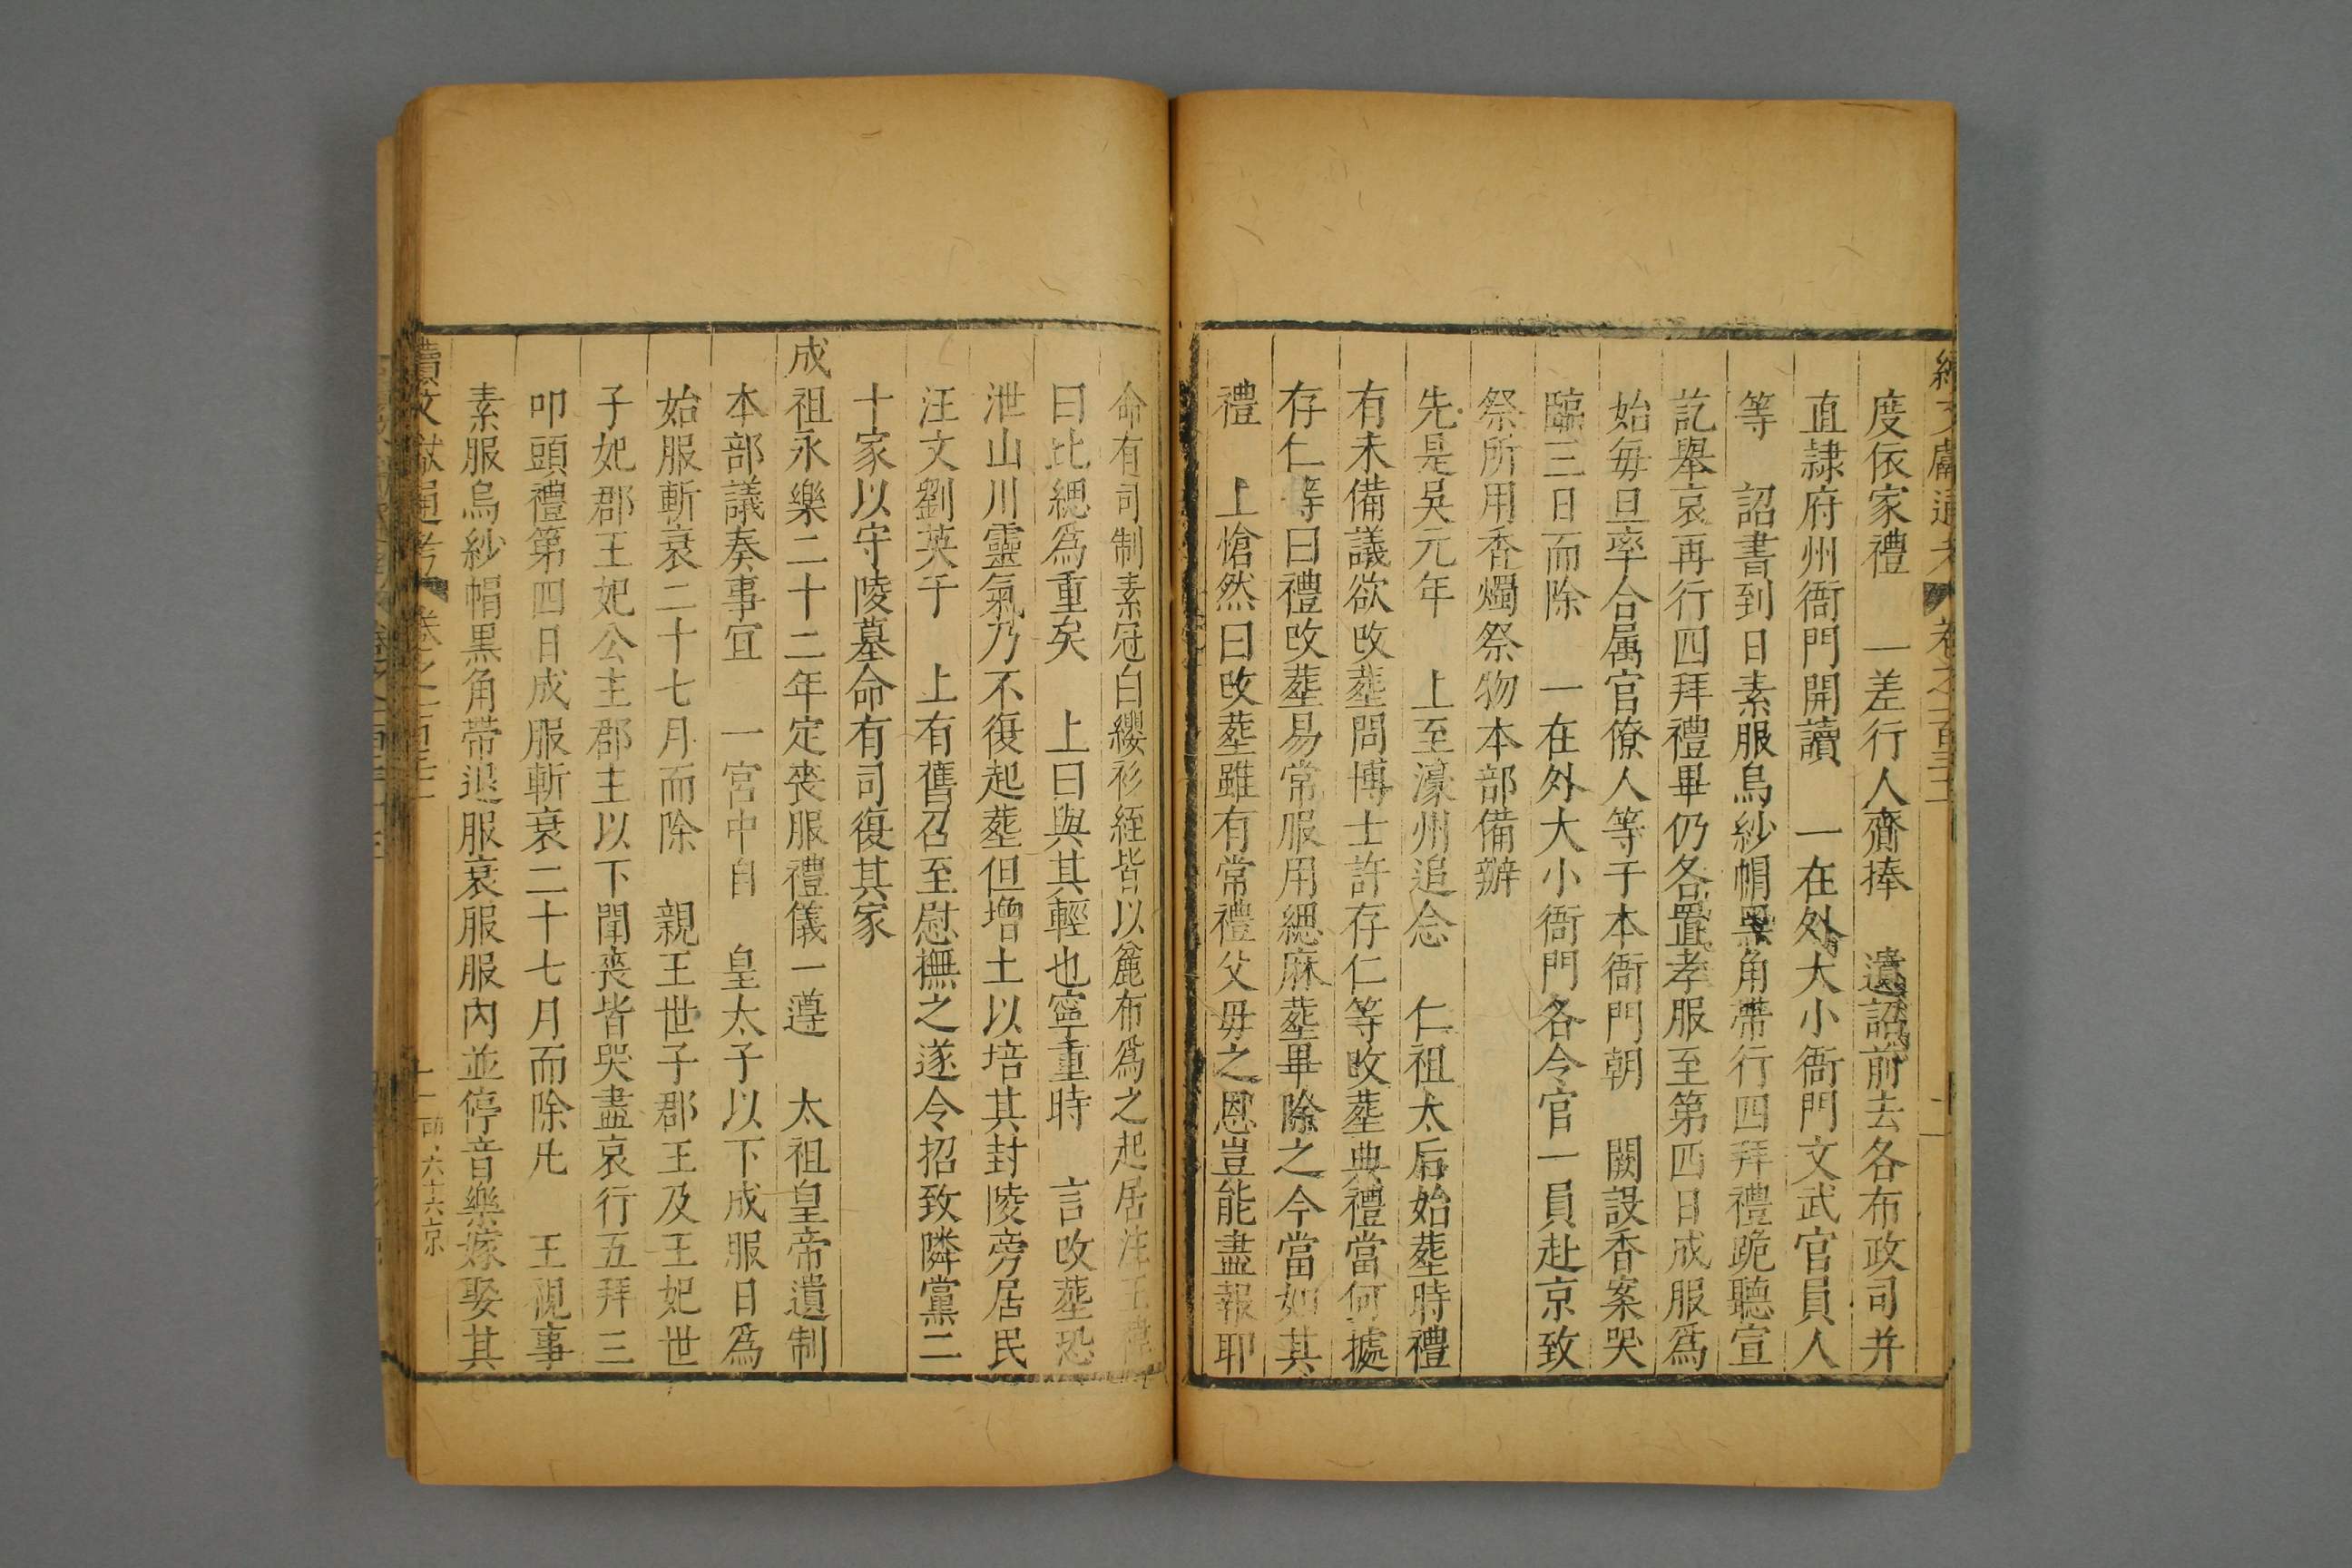 度依家禮　一差行人齎捧　遺詔前去各布政司并
直隷府州衙門開讀　一在外大小衙門文武官員人
等　詔書到日素服烏紗帽黑角帶行四拜禮跪聽宣
訖舉哀再行四拜禮畢仍各置孝服至第四日成服爲
始毎旦率合属官僚人等于本衙門朝　闕設香案哭
臨三日而除　一在外大小衙門各令官一員赴京致
祭所用香燭祭物本部備辦
先是吳元年　上至濠州追念　仁祖太后始塟時禮
有未備議欲改塟問博士許存仁等改塟典禮當何據
存仁等曰禮改塟易常服用緦麻塟畢除之今當如其
禮　上愴然曰改塟雖有常禮父毋之恩豈能盡報耶
命有司制素冠白纓衫絰皆以麄布爲之起居注王禕
曰比緦爲重矣　上曰與其輕也寧重時　言改塟恐
泄山川靈氣乃不復起塟但增土以培其封陵旁居民
汪文劉英于　上有舊召至慰撫之遂令招致隣黨二
十家以守陵墓命有司復其家
成祖永樂二十二年定喪服禮儀一遵　太祖皇帝遺制
本部議奏事宜　一宮中自　皇太子以下成服日爲
始服斬衰二十七月而除　親王世子郡王及王妃世
子妃郡王妃公主郡主以下聞喪皆哭盡哀行五拜三
叩頭禮第四日成服斬衰二十七月而除凡　王視事
素服烏紗帽黑角帶退服衰服服內並停音樂嫁娶其
續文獻通考